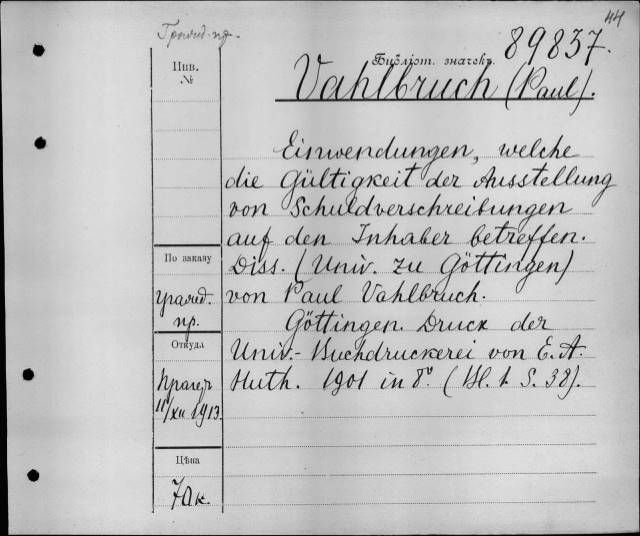 44
Гражд. пр.
89837.
Библіот. значекъ.
Инв.
№
Vahlbruch (Paul).
Einwendungen, welche
die Gültigkeit der Ausstellung
von Schuldverschreibungen
auf den Inhaber betreffen.
По заказу
Diss. (Univ. zu Göttingen)
гражд.
пр.
von Paul Vahlbruch.
Göttingen. Druck der
Откуда
Univ.-Buchdruckerei von E. A.
Прагеръ
11/XII 1913.
Huth. 1901 in 8º. (Bl. 1. S. 38).
Цѣна